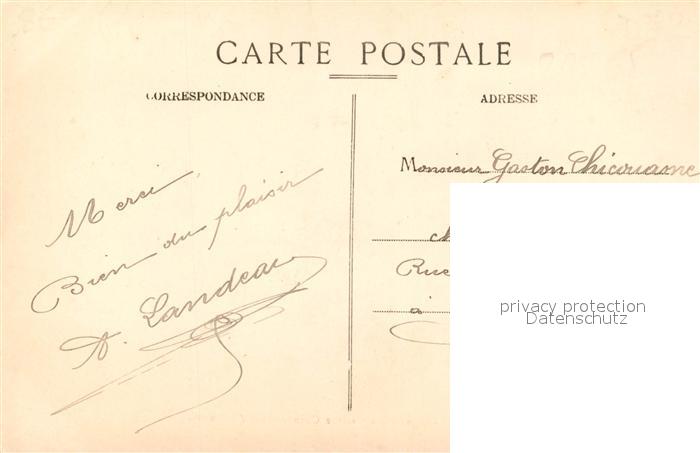 CARTE POSTALE
CORRESPONDANCE
ADRESSE
Merci
Bien du plaisir
A. Landeau
Monsieur Gaston
Rue
à
privacy protection
Datenschutz